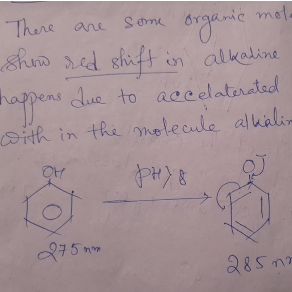 There are some organic mol
Show red shift in alkaline
happens due to accelaterated
with in the molecule alkalin
OH
PH > 8
O
275 nm
285 nm